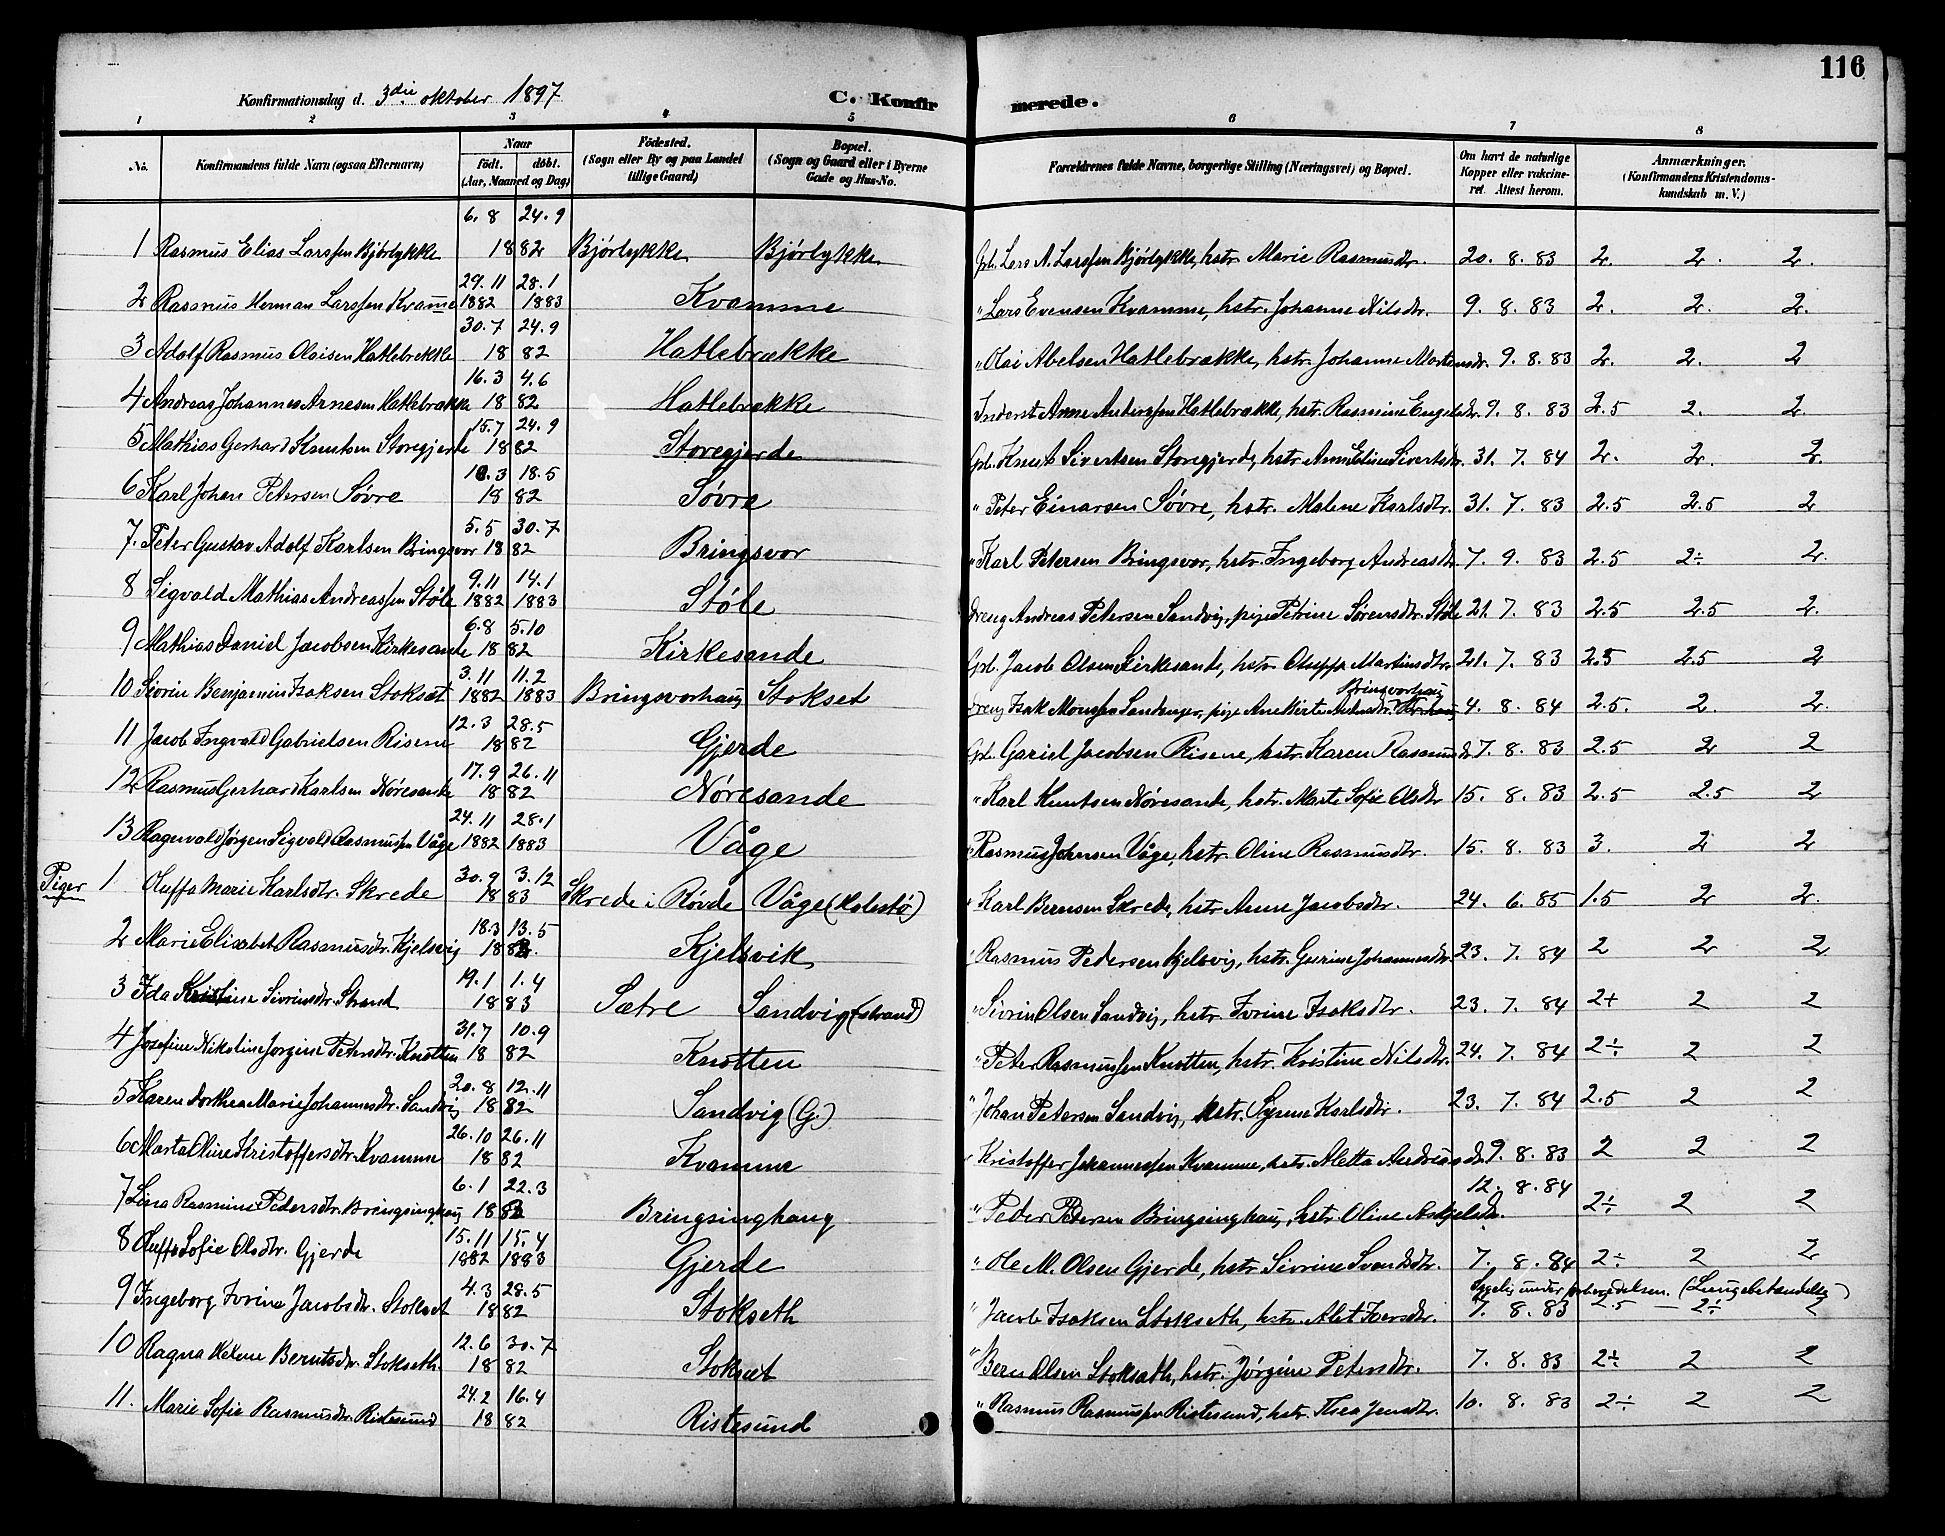 116
Konfirmationsdag d. 3die oktober 1897 C. Konfirmerede.
1 2 3 4 5 6 7 8
No. Konfirmandens fulde Navn (ogsaa Efternavn) Naar født. døbt. (Aar, Maaned og Dag) Fødested. (Sogn eller By og paa Landet tillige Gaard) Bopæl. (Sogn og Gaard eller i Byerne Gade og Hus-No. Forældrenes fulde Navne, borgerlige Stilling (Næringsvei) og Bopæl. Om havt de naturlige Kopper eller vakcineret. Attest herom. Anmærkninger. (Konfirmandens Kristendomskundskab m. V.)
6.8 24.9
1 Rasmus Elias Larssen Bjørlykke 1882 Bjørlykke Bjørlykke Gbr. Lars A. Larssen Bjørlykke, hstr. Marie Rasmusdtr. 20. 8. 83 2. 2. 2.
29.11 28.1
2 Rasmus Herman Larssen Kvamme 1882 1883 Kvamme " Lars Evensen Kvamme, hstr. Johanne Nilsdtr. 9. 8. 83 2. 2. 2.
30.7 24.9
3 Adolf Rasmus Olaisen Hatlebrekke 1882 Hatlebrække " Olai Abelsen Hatlebrække, hstr. Johanne Martinsdr. 9. 8. 83 2. 2. 2
16.3 4.6
4 Andreas Johannes Arnesen Hatlebrække 1882 Hatlebrække Inderst Arne Anderssen Hatlebrække, hstr. Rasmine Engelsdr. 9. 8. 83 2.5 2. 2.
15.7 24.9
5 Mathias Gerhard Knutsen Storegjerde 1882 Storegjerde Gbr. Knut Sivertsen Storegjerde, hstr. Anne Eline Sivertsdr. 31. 7. 84 2. 2. 2.
18.3 18.5
6 Karl Johan Petersen Søvre 1882 Søvre " Peter Einarsen Søvre, hstr. Malene Karlsdtr. 31. 7. 83 2.5 2.5 2
5.5 30.7
7. Peter Gustav Adolf Karlsen Bringsvor 1882 Bringsvor " Karl Petersen Bringsvor, hstr. Ingeborg Andreasdtr. 7. 9. 83 2.5 2÷ 2.
9.11 14.1
8 Sigvald Mathias Andreassen Støle 1882 1883 Støle Dreng Andreas Petersen Sandvig, pige Petrine Sørensdtr. Støle 21. 7. 83 2.5 2.5 2.
6.8 5.10
9 Mathias Daniel Jacobsen Kirkesande 1882 Kirkesande Gbr. Jacob Olsen Kirkesande, hstr. Oluffa Martinsdtr. 21. 7. 83 2.5 2.5 2
3.11 11.2
10 Sivrin Benjamin Isaksen Stokset 1882 1883 Bringsvorhaug Stokset Dreng Isak Monssen, pige Ane Bringsvorhaug 4. 8. 84 2.5. 2. 2.
12.3 28.5
11 Jacob Ingvald Gabrielsen Risene 1882 Gjerde Gbr. Gabriel Jacobsen Risene, hstr. Karen Rasmusdr. 7. 8. 83 2.5 2 2
17.9 26.11
12 Rasmus Gerhard Karlsen Nøresande 1882 Nøresande " Karl Knutsen Nøresande, hstr. Marte Sofie Olsdtr 15. 8. 83 2.5 2.5 2
24.11 28.1
13 Ragnvald Jørgen Sigvald Rasmussen Våge 1882 1883 Våge " Rasmus Johnsen Våge, hstr. Oline Rasmusdtr. 15. 8. 83 3. 2 2
30.9 3.12
Piger 1 Oluffa Marie Karlsdtr. Skrede 1883 Skrede i Røvde Våge (Holestø) " Karl Berntsen Skrede, hstr. Anne Jacobsdtr. 24. 6. 85 1.5 2 2.
18.3 13.5
2 Marie Elisabet Rasmusdtr. Kjelsvig Kjelsvik " Rasmus Pedersen Kjelsvig, hstr. Gurine Johannesdtr. 23. 7. 84 2 2 2
19.1 1.4
3 Ida Kristine Sivrinsdtr. Strand 1883 Sætre Sandvig (strand) " Sivrin Olsen Sandvig, hstr. Ivrine Isaksdtr. 23. 7. 84 2+ 2 2
31.7 10.9
4 Josefine Nikoline Jorgine Petersdtr. Knotten 1882 Knotten " Peter Rasmussen Knotten, hstr. Kristine Nilsdtr. 24. 7. 84 2÷ 2 2
20.8 12.11
5 Karen Dorthea Marie Johannesdtr. Sandvig 1882 Sandvig (G.) " Johan Petersen Sandvig, hstr. Syrine Karlsdtr. 23. 7. 84 2.5 2 2
26.10 26.11
6 Marta Oline Kristoffersdtr. Kvamme 1882 Kvamme " Kristoffer Johannessen Kvamme, hstr. Aletta Andreasdr. 9. 8. 83 2 2 2
6.1 22.3 12. 8. 84
7 Lina Rasmine Pedersdtr. Bringsinghaug Bringsinghaug " Peder Petersen Bringsinghaug, hstr. Oline 2÷ 2 2
15.11 15.4
8 Oluffa Sofie Olsdtr. Gjerde 1882 1883 Gjerde " Ole M. Olsen Gjerde, hstr. Sivrine Svendsdtr. 7. 8. 84 2÷ 2 2
4.3 28.5 Sygelig under forberedelsen. (Lungebetændelse)
9 Ingeborg Ivrine Jacobsdtr. Stokset 1882 Stokseth " Jacob Isaksen Stokseth, hstr. Alet Iversdtr. 7. 8. 83 2.5 — 2÷ 2
12.6 30.7
10 Ragna Helene Berntsdtr. Stokseth. 1882 Stokset " Bern Olsen Stokseth, hstr. Jørgine Petersdtr. 7. 8. 83 2÷ 2 2
24.2 16.4
11. Marie Sofie Rasmusdtr. Ristesund 1882 Ristesund " Rasmus Rasmussen Ristesund, hstr. Thea Jensdtr. 10. 8. 83 2÷ 2 2